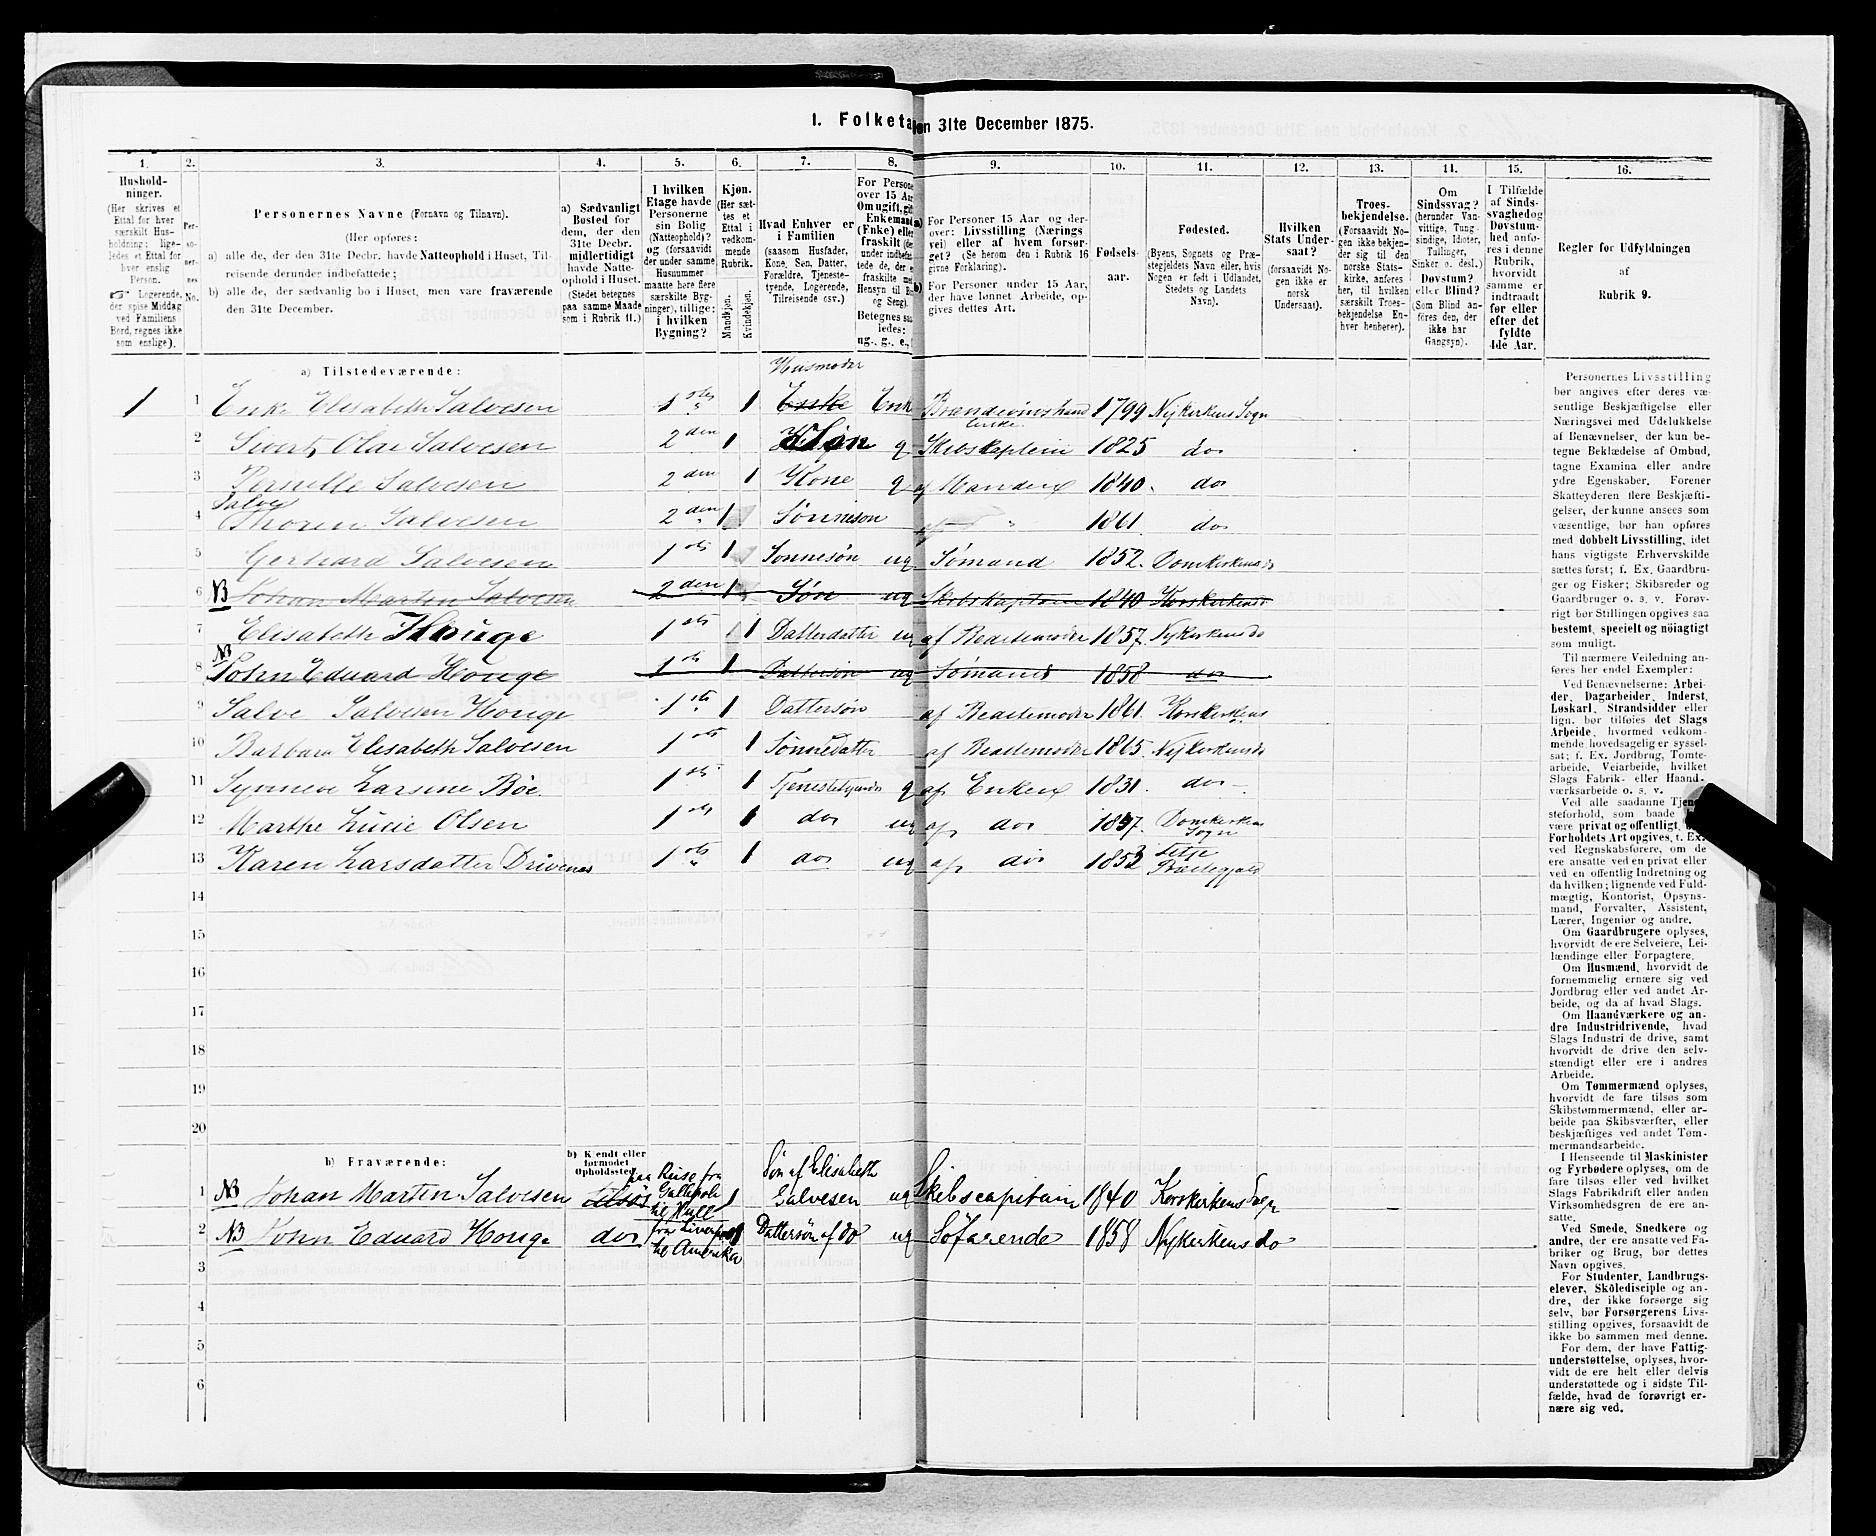 1. Folketa
en 31te December 1875.
1. 2. 3. 4. 5. 6. 7. 8. 9. 10. 11. 12. 13. 14. 15. 16.
Hushold-
ninger.
(Her skrives et
Ettal for hver
særskilt Hus-
holdning; lige-
ledes et Ettal for
hver enslig
Person.
Logerende,
der spise Middag
ved Familiens
Bord, regnes ikke
som enslige).
Per-
so-
ner-
nes
No.
Personernes Navne (Fornavn og Tilnavn).
(Her opføres:
a) alle de, der den 31te Decbr. havde Natteophold i Huset, Til-
reisende derunder indbefattede;
b) alle de, der sædvanlig bo i Huset, men vare fraværende
den 31te December.
a) Sædvanligt
Bosted for
dem, der den
31te Decbr.
midlertidigt
havde Natte-
ophold i Huset.
(Stedet betegnes
paa samme Maade
som i Rubrik 11.)
I hvilken
Etage havde
Personerne
sin Bolig
(Natteophold)?
og (forsaavidt
der under samme
Husnummer
maatte høre flere
særskilte Byg-
ninger), tillige:
i hvilken
Bygning?
Kjøn.
(Her sæt-
tes et
Ettal i
vedkom-
mende
Rubrik.
Mandkjøn.
Kvindekjøn.
Hvad Enhver er
i Familien
(saasom Husfader,
Kone, Søn, Datter,
Forældre, Tjeneste-
tyende, Logerende,
Tilreisende osv.)
For Persone
over 15 Aar
Om ugift, gift
Enkemand
(Enke) eller
fraskilt (de
under indbefat-
tede de, der e
fraskilte me
Hensyn til B
og Seng).
Betegnes saa
ledes:
ug., g., e.,
a) For Personer 15 Aar og der-
over: Livsstilling (Nærings
vei) eller af hvem forsør-
get? (Se herom den i Rubrik 16
givne Forklaring).
b) For Personer under 15 Aar,
der have lønnet Arbeide, op-
gives dettes Art.
Fødsels-
aar.
Fødested.
(Byens, Sognets og Præ-
stegjeldets Navn eller, hvis
Nogen er født i Udlandet,
Stedets og Landets
Navn).
Hvilken
Stats Under-
saat?
(forsaavidt No-
gen ikke er
norsk
Undersaat).
Troes-
bekjendelse.
(Forsaavidt No-
gen ikke bekjen-
der sig til den
norske Stats-
kirke, anføres
her, til hvilken
særskilt Troes-
bekjendelse En-
hver henhører).
Om
Sindssvag?
(herunder Van-
vittige, Tung-
sindige, Idioter,
Tullinger,
Sinker o. desl.)
Døvstum?
eller Blind?
(Som Blind an-
føres den, der
ikke har
Gangsyn).
I Tilfælde
af Sinds-
svaghed og
Døvstum-
hed anfø-
res i denne
Rubrik,
hvorvidt
samme er
indtraadt
før eller
efter det
fyldte
4de Aar.
Regler for Udfyldningen
af
Rubrik 9.
a) Tilstedeværende:
Husmoder
1 1 Enke Elisabeth Salvesen 1ste 1 Enke Enke Brændevinshand Enke 1799 Nykirkens Sogn
2 Sivert Olai Salvesen 2den 1 Søn g Skibskaptein 1825 do
3 Pernille Salvesen 2den 1 Kone g af Manden 1840. do
4 Salve Thoren Salvesen 2den 1 Sønneson af " 1861. do
5 Gerhard Salvesen 1ste 1 Sonnesøn ug Sømand 1852. Domkirkens do
6 NB Johan Marten Salvesen 2den 1 Søn ug Skibskaptain 1840 Korskirkens do
7 Elisabeth Houge 1ste 1 Datterdatter ug af Bedstemoder 1857. Nykirkens do
8 NB John Eduard Houge 1ste 1 Dattersøn ug Sømand 1858 do
9 Salve Salvesen Houge 1ste 1 Dattersøn af Bedstemoder 1861. Korskirkens
10 Barbara Elisabeth Salvesen 1ste 1 Sønnedatter af Bedstemoder 1865. Nykirkens do
11 Synneve Larsine Böe. 1ste 1 Tjenestetyende g af Enken 1831. do
12 Marthe Lucie Olsen 1ste 1 do ug af do 1857. Domkirkens Sogn
13 Karen Larsdatter Drivenes 1ste 1 do ug af do 1852 Præstegjeld
14
15
16
17
18
19
20
b) Fraværende:
b) Kjendt eller
formodet
Opholdssted.
1 NB Johan Marten Salvesen tilsøs paa Reise fra Gallipoli til Hull 1 Søn af Elisabeth Salvesen ug Skibscapitain 1840 Korskirkens Sogn
2 NB John Eduard Houge do fra Liverpool til Amerika 1 Dattersøn af do ug Söfarende 1858 Nykirkens do
3
4
5
6
Personernes Livsstilling
bør angives efter deres væ-
sentlige Beskjæftigelse eller
Næringsvei med Udelukkelse
af Benævnelser, der kun be-
tegne Beklædelse af Ombud,
tagne Examina eller andre
ydre Egenskaber. Forener
Skatteyderen flere Beskjæfti-
gelser, der kunne ansees som
væsentlige, bør han opføres
med dobbelt Livsstilling, idet
hans vigtigste Erhvervskilde
sættes først; f. Ex. Gaardbru-
ger og Fisker; Skibsreder og
Gaardbruger o. s. v. Forøv-
rigt bør Stillingen opgives saa
bestemt, specielt og nöiagtigt
som muligt.
Til nærmere Veiledning an-
føres her endel Exempler:
Ved Benævnelserne: Arbei-
der, Dagarbeider, Inderst,
Løskarl, Strandsidder eller
lign. bør tilføies det Slags
Arbeide, hvormed vedkom-
mende hovedsagelig er syssel-
sat; f. Ex. Jordbrug, Tomte-
arbeide, Veiarbeide, hvilket
Slags Fabrik- eller Haand-
værksarbeide o. s. v.
Ved alle saadanne Tjene-
steforhold, som baade
være privat og offentligt,
Forholdets Art opgives, t. Ex.
ved Regnskabsførere, om de
ere ansatte ved en privat eller
ved en offentlig Indretning og
da hvilken; lignende ved Fuld-
mægtig, Kontorist, Opsyns-
mand, Forvalter, Assistent,
Lærer, Ingeniør og andre.
Om Gaardbrugere oplyses,
hvorvidt de ere Selveiere, Lei-
lændinge eller Forpagtere.
Om Husmænd, hvorvidt de
fornemmelig ernære sig ved
Jordbrug eller ved andet Ar-
beide, og da af hvad Slags.
Om Haandværkere og an-
dre Industridrivende, hvad
Slags Industri de drive, samt
hvorvidt de drive den selv-
stændigt eller ere i andres
Arbeide.
Om Tømmermænd oplyses,
hvorvidt de fare tilsøs som
Skibstømmermænd, eller ar-
beide paa Skibsværfter, eller
beskjæftiges ved andet Tøm-
mermandsarbeide.
I Henseende til Maskinister
og Fyrbødere oplyses, om de
fare tilsøs eller ved hvilket
Slags Fabrikdrift eller anden
Virksomhedsgren de ere an-
satte.
Ved Smede, Snedkere og
andre, der ere ansatte ved Fa-
briker og Brug, bør dettes
Navn opgives.
For Studenter, Landbrugs-
elever, Skôledisciple og an-
dre, der ikke forsørge sig
selv, bør Forsørgerens Livs-
stilling opgives, forsaavidt de
ikke bo sammen med denne.
For dem, der have Fattig-
understøttelse, oplyses, hvor-
vidt de ere helt eller delvis
understøttede og i sidste Til-
fælde, hvad de forøvrigt er-
nære sig ved.